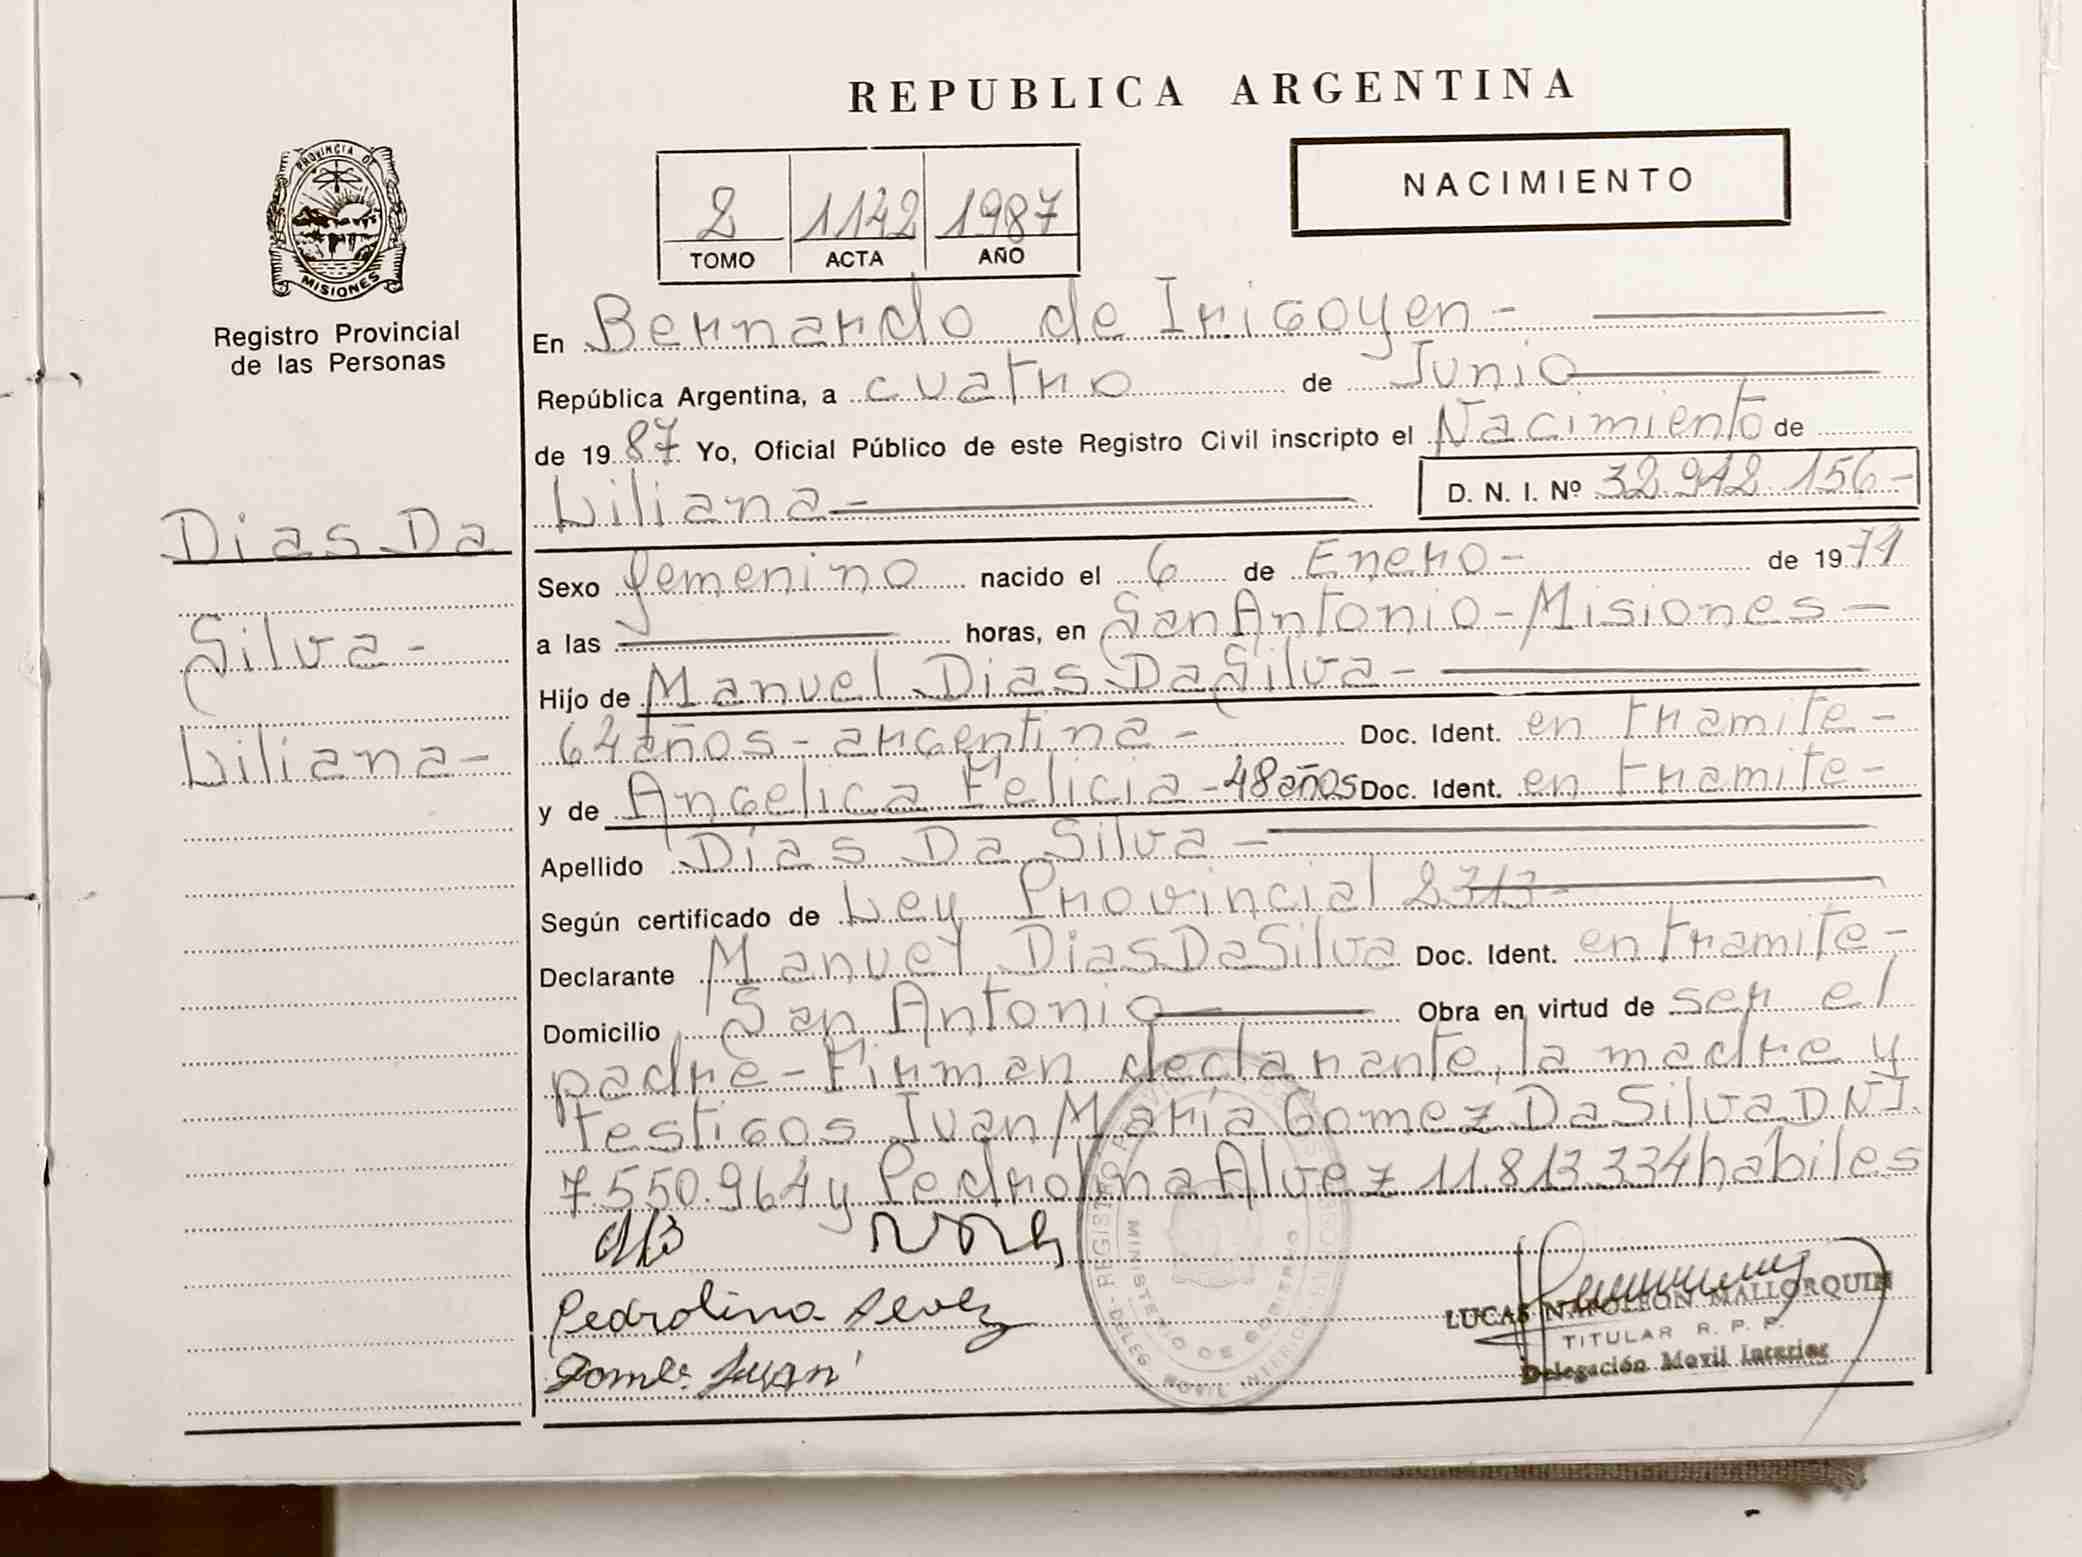 REPUBLICA ARGENTINA
PROVINCIA DE
MISIONES
Registro Provincial
de las Personas
NACIMIENTO
2 1142 1987
TOMO ACTA AÑO
En Bernardo de Irigoyen -
República Argentina, a cuatro de Junio
de 1987 Yo, Oficial Público de este Registro Civil inscripto el Nacimiento de
Liliana - D. N. I. Nº 32.942.156-
Dias Da
Silva -
Liliana -
Sexo femenino nacido el 6 de Enero - de 1971
a las horas, en San Antonio - Misiones -
Hijo de Manuel Dias Da Silva -
64 años - argentina - Doc. Ident. en tramite -
y de Angelica Felicia - 48 años Doc. Ident. en tramite -
Apellido Dias Da Silva -
Según certificado de Ley Provincial 2313 -
Declarante Manuel Dias Da Silva Doc. Ident. en tramite -
Domicilio San Antonio Obra en virtud de ser el
padre - Firman declarante, la madre y
testigos Juan María Gomez Da Silva D.N.I.
7.550.964 y Pedrolina Alvez 11.813.334 habiles
Pedrolina
Juan
LUCAS NAPOLEON MALLORQUIN
TITULAR R. P. P.
Delegación Movil Interior
MINISTERIO DE GOBIERNO